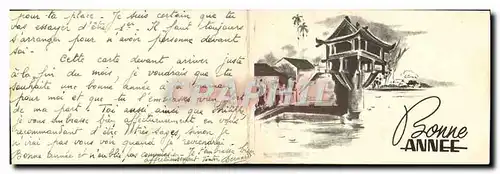 pour ta place. Je suis certain que tu
vas essayer d'être 1er. Il faut toujours
s'arranger pour n'avoir personne devant
soi.
Cette carte devant arriver juste
à la fin du mois, je voudrais que tu
souhaite une bonne année à ta
pour moi et que tu l'embrasses bien
de ma part. Toi aussi ainsi que
je vous embrasse bien affectueusement en vous
recommandant d'être très sages, sinon je
n'irai pas vous voir quand je reviendrai.
Bonne année et n'oubliez pas Je t'embrasse bien
affectueusement
Bonne
ANNÉE